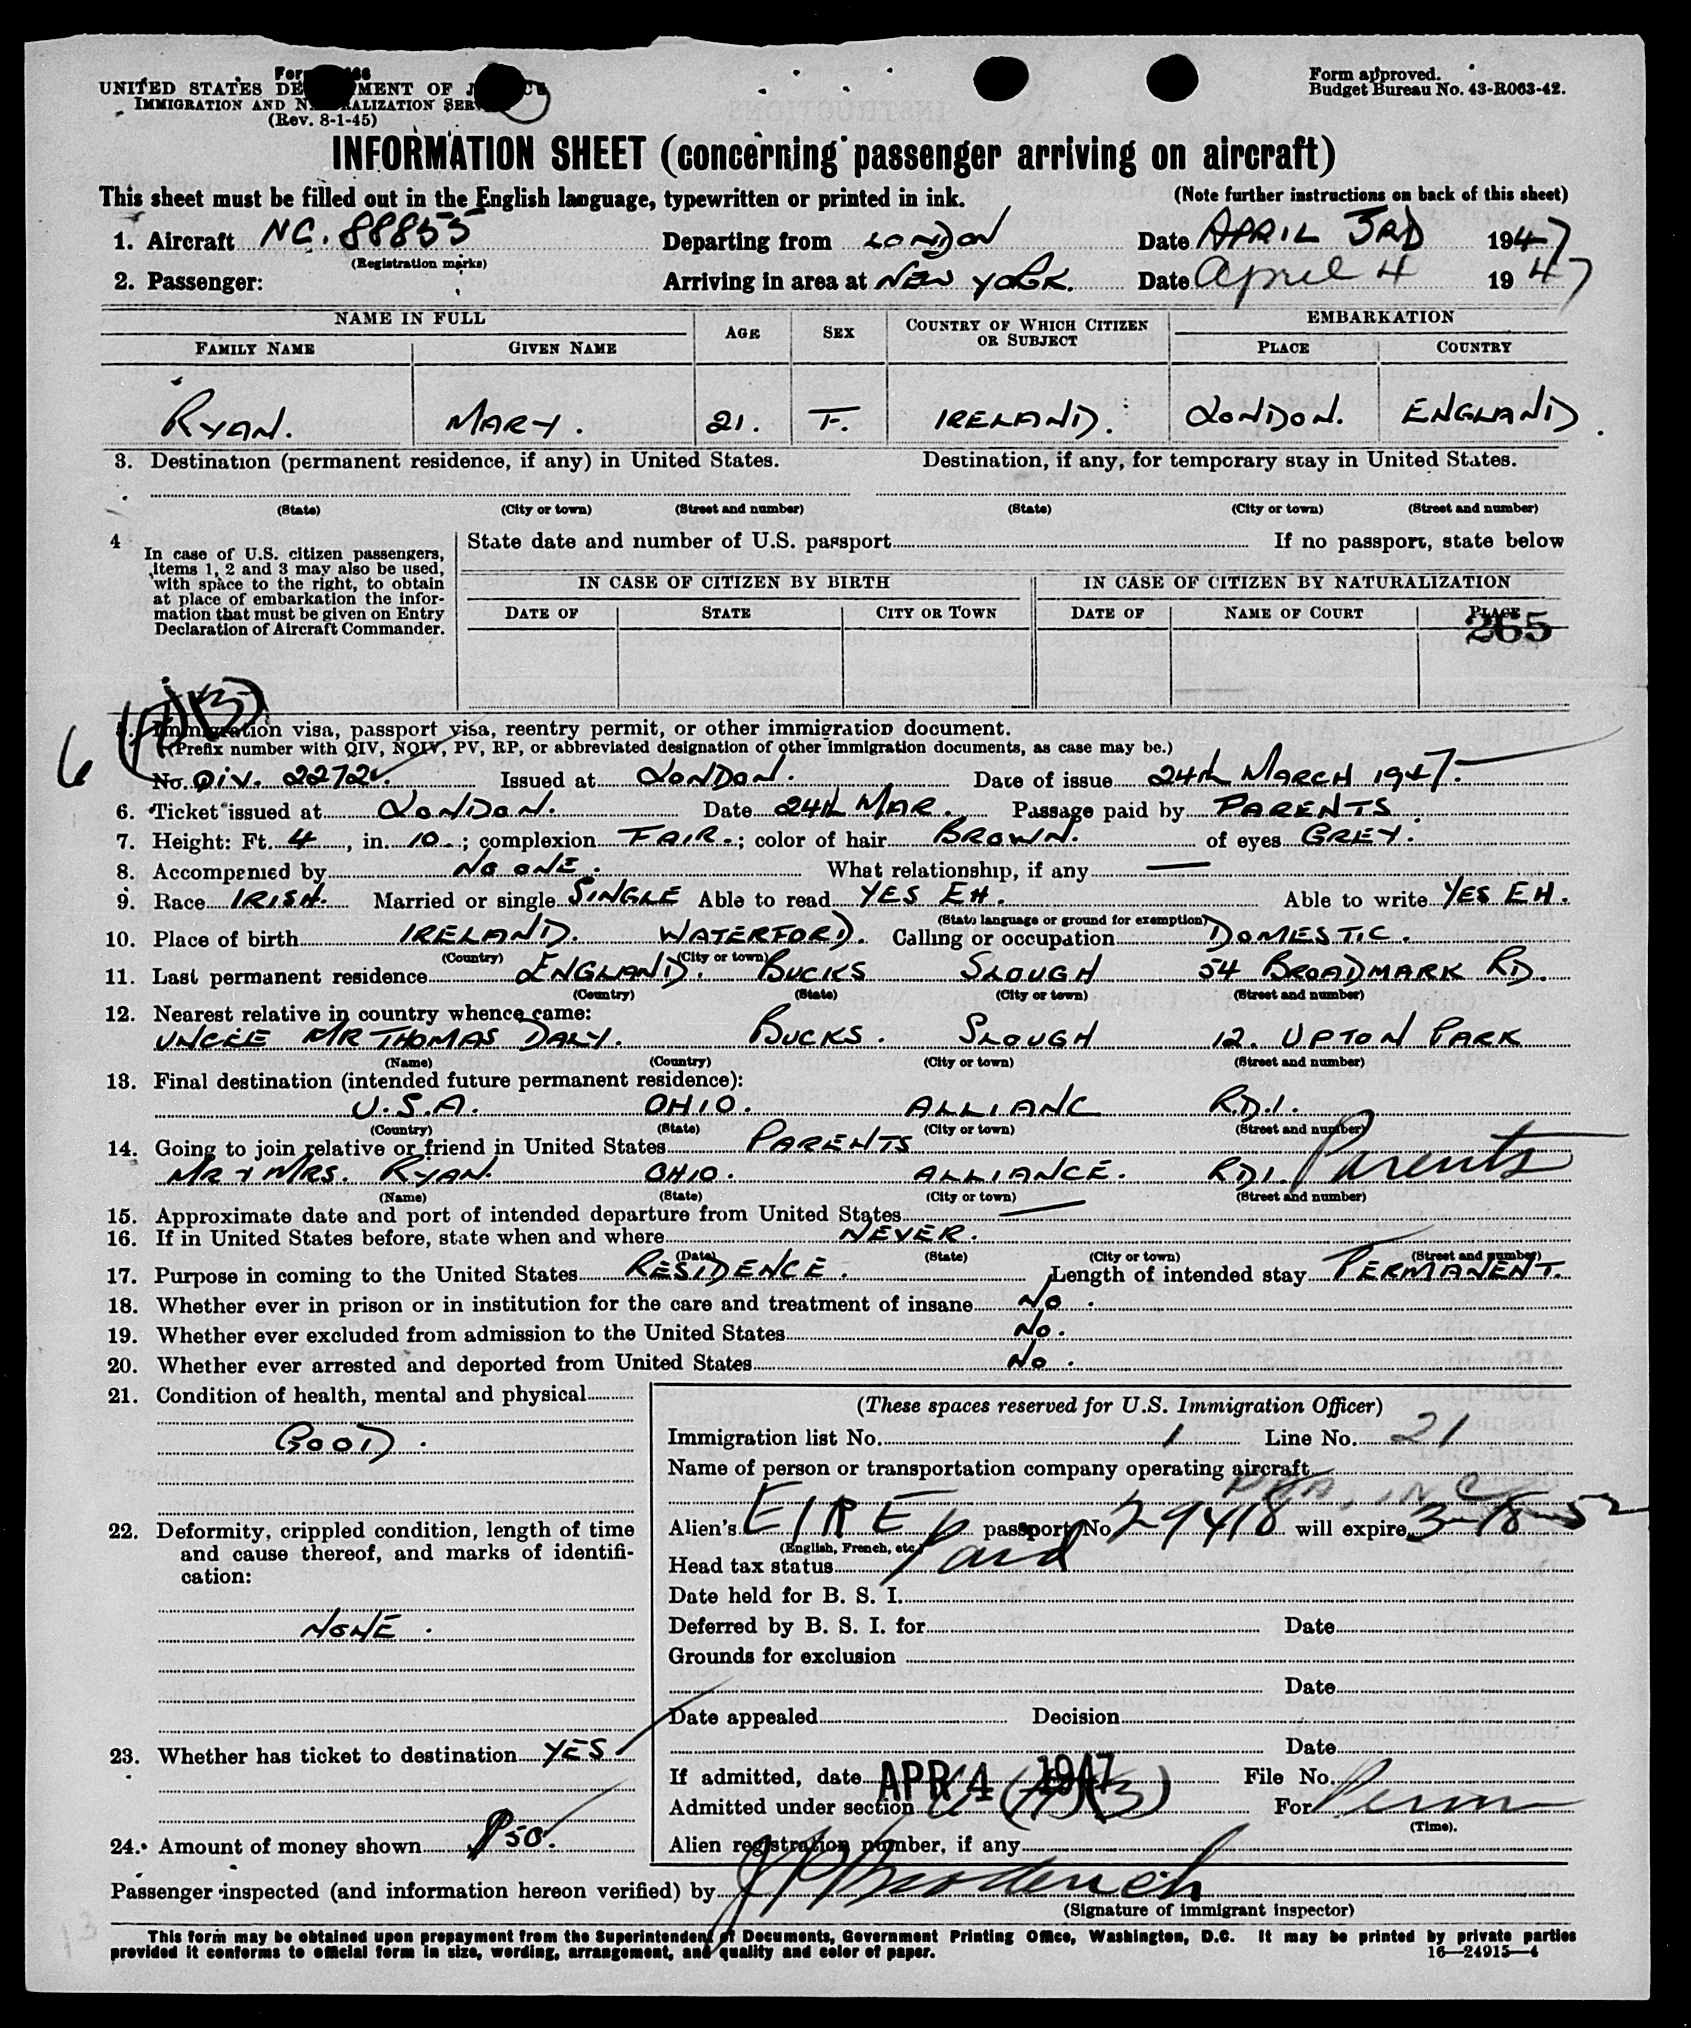 Form
UNITED STATES DEPARTMENT OF JUSTICE
IMMIGRATION AND NATURALIZATION SERVICE
(Rev. 8-1-45)
Form approved.
Budget Bureau No. 43-R063-42.
INFORMATION SHEET (concerning passenger arriving on aircraft)
This sheet must be filled out in the English language, typewritten or printed in ink.
(Note further instructions on back of this sheet)
1. Aircraft NC. 88855 Departing from LONDON Date APRIL 3RD 1947
(Registration marks)
2. Passenger: Arriving in area at NEW YORK. Date April 4 1947
NAME IN FULL AGE SEX COUNTRY OF WHICH CITIZEN OR SUBJECT EMBARKATION
FAMILY NAME GIVEN NAME PLACE COUNTRY
RYAN. MARY. 21. F. IRELAND. LONDON. ENGLAND.
3. Destination (permanent residence, if any) in United States. Destination, if any, for temporary stay in United States.
(State) (City or town) (Street and number) (State) (City or town) (Street and number)
4 In case of U.S. citizen passengers, items 1, 2 and 3 may also be used, with space to the right, to obtain at place of embarkation the information that must be given on Entry Declaration of Aircraft Commander.
State date and number of U.S. passport If no passport, state below
IN CASE OF CITIZEN BY BIRTH IN CASE OF CITIZEN BY NATURALIZATION
DATE OF STATE CITY OR TOWN DATE OF NAME OF COURT PLACE
265
6 (A)(3)
5. Immigration visa, passport visa, reentry permit, or other immigration document.
(Prefix number with QIV, NQIV, PV, RP, or abbreviated designation of other immigration documents, as case may be.)
No. QIV. 2272 Issued at LONDON. Date of issue 24th MARCH 1947.
6. Ticket issued at LONDON. Date 24th MAR. Passage paid by PARENTS.
7. Height: Ft. 4, in. 10.; complexion FAIR.; color of hair BROWN. of eyes GREY.
8. Accompanied by NO ONE. What relationship, if any —
9. Race IRISH. Married or single SINGLE Able to read YES EH. Able to write YES EH.
(State language or ground for exemption)
10. Place of birth IRELAND. WATERFORD. Calling or occupation DOMESTIC.
(Country) (City or town)
11. Last permanent residence ENGLAND. BUCKS SLOUGH 54 BROADMARK RD.
(Country) (State) (City or town) (Street and number)
12. Nearest relative in country whence came:
UNCLE MR THOMAS DALY. BUCKS. SLOUGH 12. UPTON PARK
(Name) (Country) (City or town) (Street and number)
13. Final destination (intended future permanent residence):
U.S.A. OHIO. ALLIANC R.D.1.
(Country) (State) (City or town) (Street and number)
14. Going to join relative or friend in United States PARENTS
MR & MRS. RYAN. OHIO. ALLIANCE. RD1. Parents
(Name) (State) (City or town) (Street and number)
15. Approximate date and port of intended departure from United States —
16. If in United States before, state when and where NEVER.
(Date) (State) (City or town) (Street and number)
17. Purpose in coming to the United States RESIDENCE. Length of intended stay PERMANENT.
18. Whether ever in prison or in institution for the care and treatment of insane No.
19. Whether ever excluded from admission to the United States No.
20. Whether ever arrested and deported from United States No.
21. Condition of health, mental and physical
GOOD.
22. Deformity, crippled condition, length of time and cause thereof, and marks of identification:
NONE.
23. Whether has ticket to destination YES.
24. Amount of money shown $50.
(These spaces reserved for U.S. Immigration Officer)
Immigration list No. 1 Line No. 21
Name of person or transportation company operating aircraft
INC
Alien's EIRE passport No. 29418 will expire 3-18-52
(English, French, etc.)
Head tax status Paid
Date held for B. S. I.
Deferred by B. S. I. for Date
Grounds for exclusion
Date
Date appealed Decision
Date
If admitted, date APR 4 1947 File No.
Admitted under section 6 (A)(3) For Perm
(Time).
Alien registration number, if any
Passenger inspected (and information hereon verified) by
(Signature of immigrant inspector)
This form may be obtained upon prepayment from the Superintendent of Documents, Government Printing Office, Washington, D.C. It may be printed by private parties
provided it conforms to official form in size, wording, arrangement, and quality and color of paper.
16—24915-4